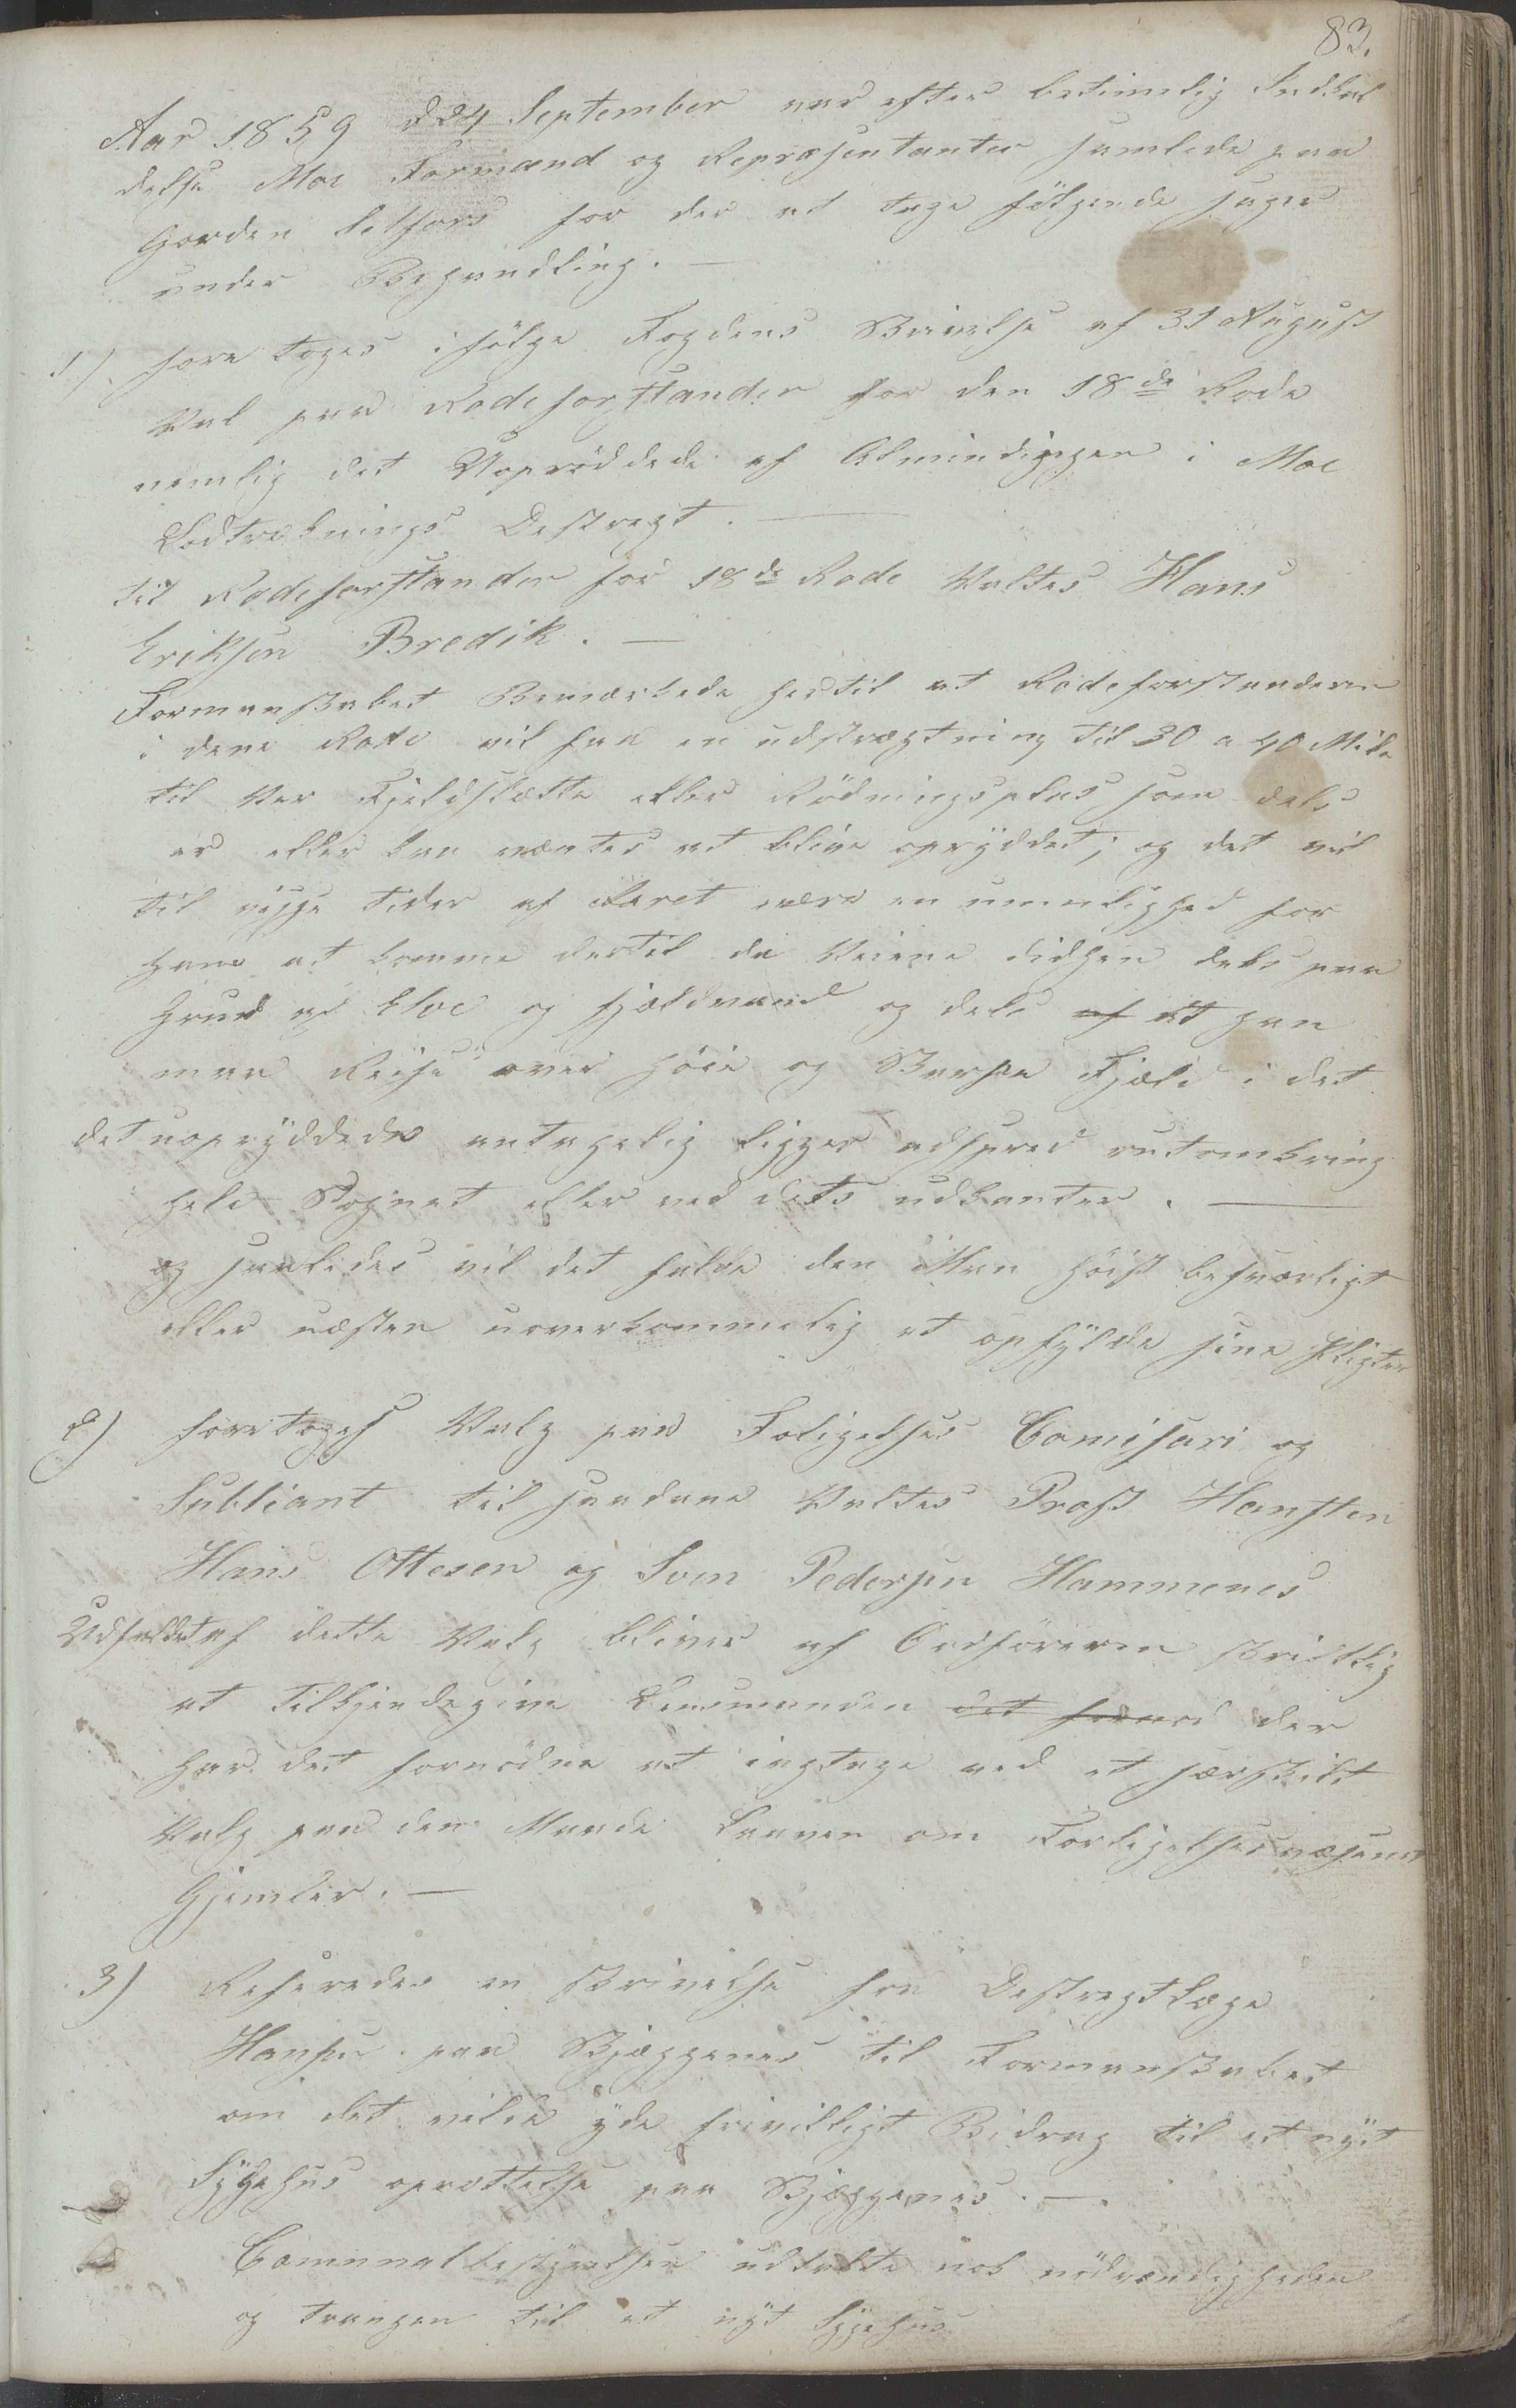 83.
Aar 1859 d 24 September var efter betimelig Indkal
delse Moe Formænd og Repræsentanter samlede paa
Gorden Selfors for der at tage følgende sager
under Behandling. —
1) fore toges ifølge Fogdens Skrivelse af 31 August
Val paa Rodeforstander for den 18de Rode
nemlig det Uoprøddede af Almindingen i Moe
Lodtræknings Destregt. —
til Rodeforstander for 18de Rode Valtes Hans
Eriksen Bredik. —
Formanskabet Bemærkede hertil at Rodeforstanderen
i dene Rode vil faa en udstrægtning til 30 a 40 Mile
til Ver Fjeldslætte eller Rødningsplas som dels
er eller kan væntes at blive opryddet; og det vil
til visse tider af Aaret være en umulighed for
ham at komme dertil da Veiene didhen dels paa
Grund af Elve og fjældvand og dels af at han
maa Reise over høie og Barske Fjæld i det
det uopryddede antagelig ligger adspred rutomkring
hele Sognet eller ved dets udkanter. —
og saaledes vil det falde den Man høist besværligt
eller næsten uoverkommelig at opfylde sine Pligter
2) foretoges Valg paa Foligelses Comisari og
Subliant til saadane Valtes Prost Hansten
Hans Ottesen og Sven Pedersen Hammenes
Udfaldet af dette Valg bliver af Ordføreren skriftlig
at tilkjendegive Lensmanden det fornød der
har det fornødne at iagtage ved et særskilt
Valg paa den Maade Loven om Forligelsesvæsenet
Gjemler. —
3) Refererdes en skrivelse fra Destregtlæge
Hansen paa Bjæggenes til Formanskabet
om det vilde yde frivilligt Bidrag til et nyt
Sygehus oprettelse paa Bjæggenes. —
Comunalbestyrelsen udtalte nok nødvendigheden
og trangen til et nyt Sygehus